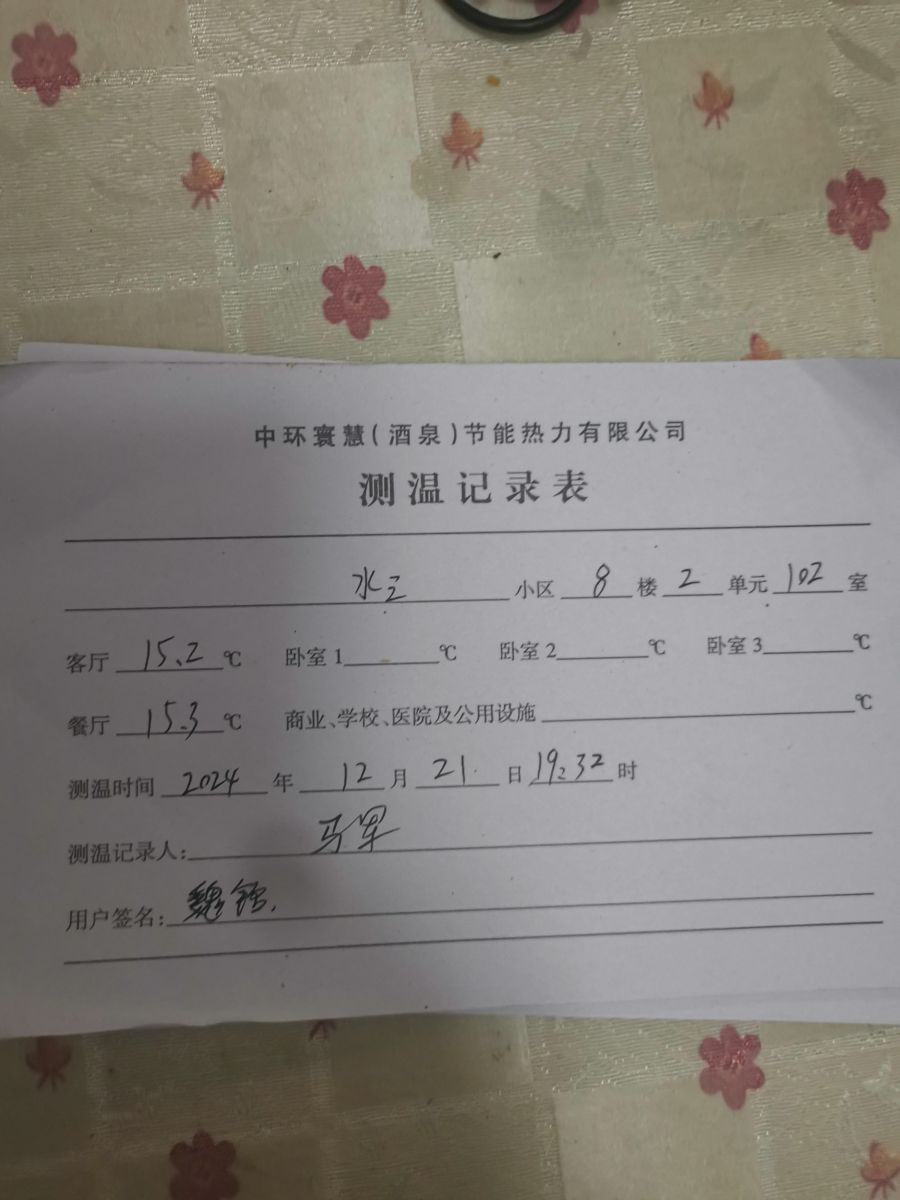 中环寰慧(酒泉)节能热力有限公司
测温记录表
水三 小区 8 楼 2 单元 102 室
客厅 15.2 ℃ 卧室1 ℃ 卧室2 ℃ 卧室3 ℃
餐厅 15.3 ℃ 商业、学校、医院及公用设施 ℃
测温时间 2024 年 12 月 21 日 19:32 时
测温记录人: 马军
用户签名: 魏